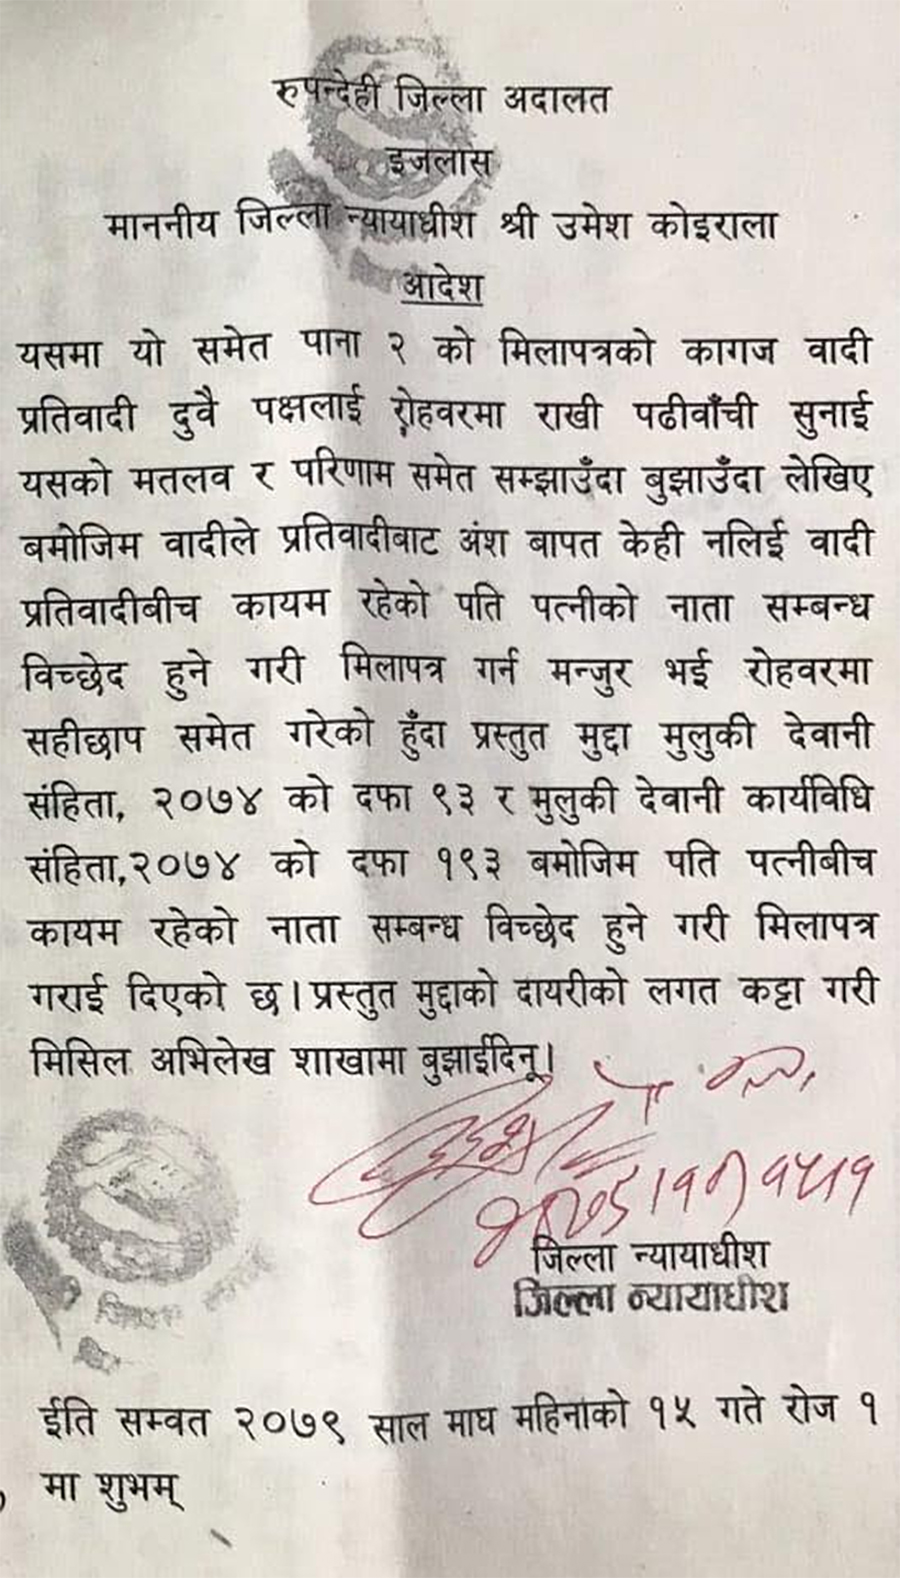 रुपन्देही जिल्ला अदालत
इजलास
माननीय जिल्ला न्यायाधीश श्री उमेश कोइराला
आदेश
यसमा यो समेत पाना २ को मिलापत्रको कागज वादी
प्रतिवादी दुवै पक्षलाई रोहवरमा राखी पढीवाँची सुनाई
यसको मतलव र परिणाम समेत सम्झाउँदा बुझाउँदा लेखिए
बमोजिम वादीले प्रतिवादीबाट अंश बापत केही नलिई वादी
प्रतिवादीबीच कायम रहेको पति पत्नीको नाता सम्बन्ध
विच्छेद हुने गरी मिलापत्र गर्न मन्जुर भई रोहवरमा
सहीछाप समेत गरेको हुँदा प्रस्तुत मुद्दा मुलुकी देवानी
संहिता, २०७४ को दफा ९३ र मुलुकी देवानी कार्यविधि
संहिता,२०७४ को दफा १९३ बमोजिम पति पत्नीबीच
कायम रहेको नाता सम्बन्ध विच्छेद हुने गरी मिलापत्र
गराई दिएको छ। प्रस्तुत मुद्दाको दायरीको लगत कट्टा गरी
मिसिल अभिलेख शाखामा बुझाईदिनू।
जिल्ला न्यायाधीश
जिल्ला न्यायाधीश
ईति सम्वत २०७९ साल माघ महिनाको १५ गते रोज १
मा शुभम्